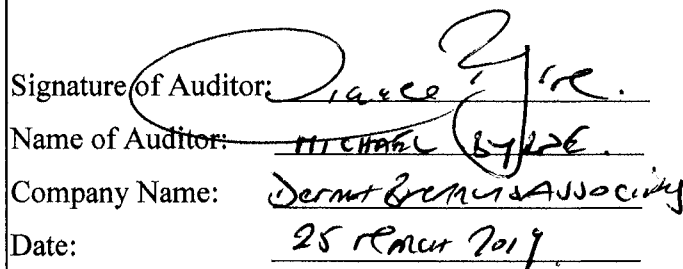 Signature of Auditor:
Name of Auditor: MICHAEL BYRNE.
Company Name: & Associates
Date: 25 March 2019